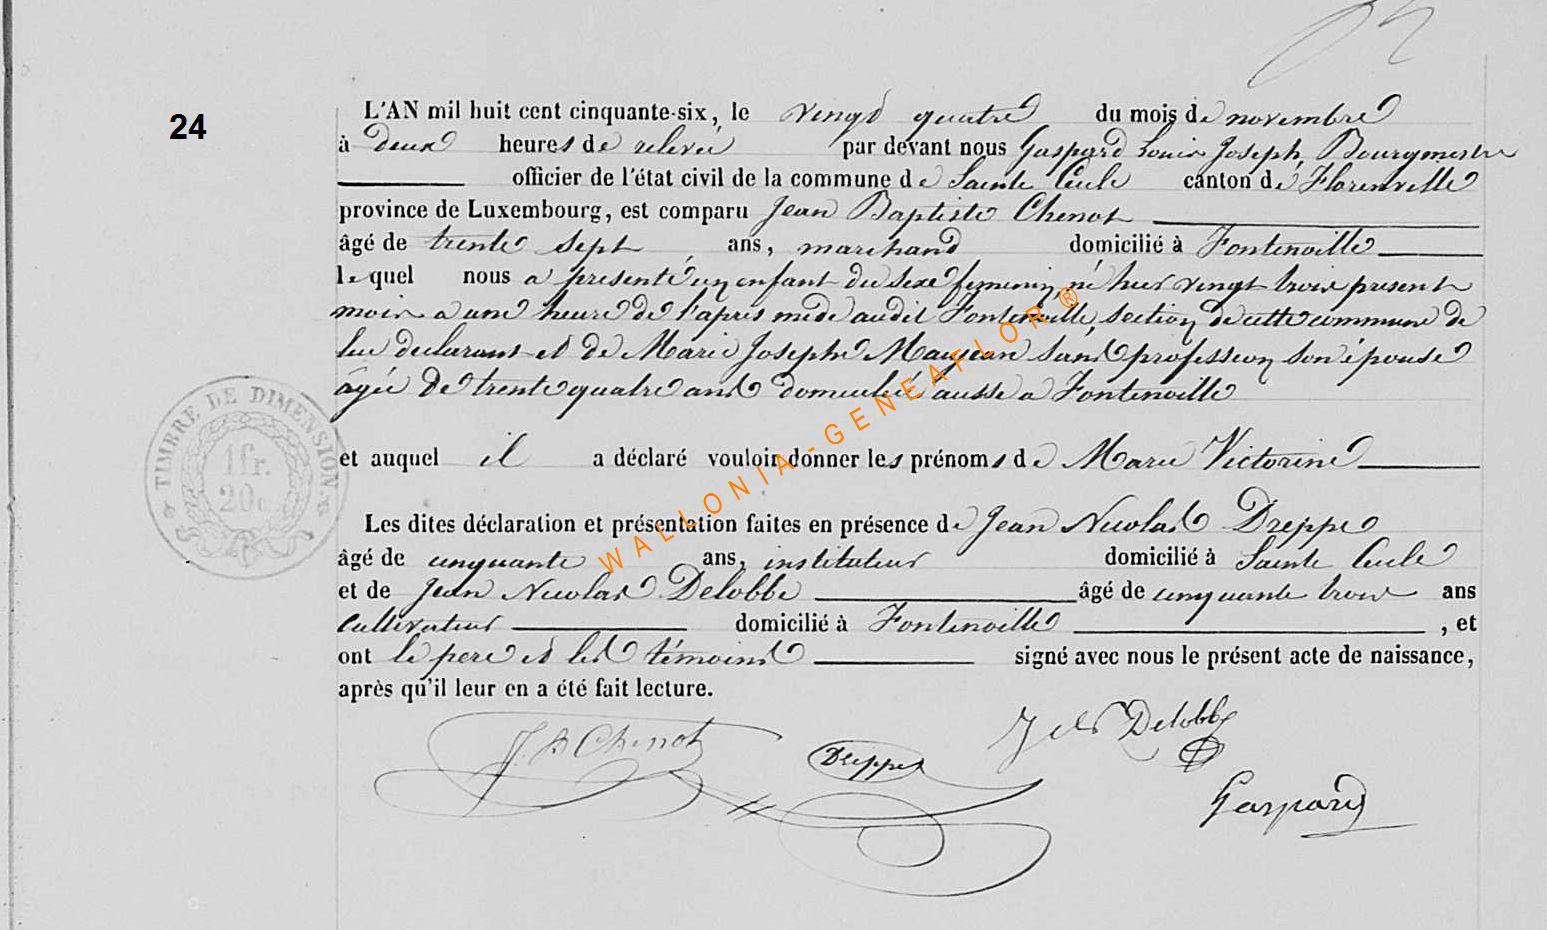 24
L'AN mil huit cent cinquante-six, le vingt quatre du mois de novembre
à deux heures de relevée par devant nous Gaspard Louis Joseph, Bourgmestre
officier de l'état civil de la commune de Sainte Cecile canton de Florenville
province de Luxembourg, est comparu Jean Baptiste Chenot
âgé de trente sept ans, marchand domicilié à Fontenoille
lequel nous a presenté un enfant du sexe feminin, né hier vingt trois present
mois a une heure de l'apres mede audit Fontenoille, section de cette commune de
lui declarant et de Marie Josephe Maujean sans profession son épouse
âgée de trente quatre ans domiciliée aussi a Fontenoille
et auquel il a déclaré vouloir donner les prénoms de Marie Victorine
Les dites déclaration et présentation faites en présence de Jean Nicolas Dreppe
âgé de cinquante ans, instituteur domicilié à Sainte Cecile
et de Jean Nicolas Delobbe âgé de cinquante trois ans
Cultivateur domicilié à Fontenoille , et
ont le pere et les témoins signé avec nous le présent acte de naissance,
après qu'il leur en a été fait lecture.
TIMBRE DE DIMENSION.
1fr.
20c.
WALLONIA-GENEAFLOR ®
J. B Chenot
Dreppe
Delobbe
Gaspard